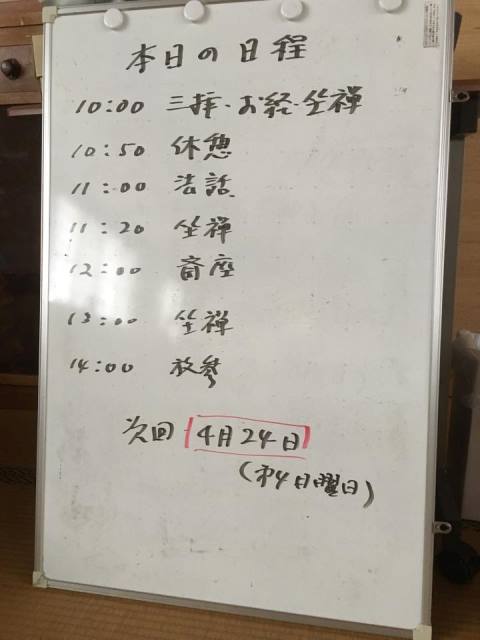 本日の日程
10:00 三拝・お経・坐禅
10:50 休憩
11:00 法話
11:20 坐禅
12:00 斎座
13:00 坐禅
14:00 放参
次回 4月24日
(第4日曜日)